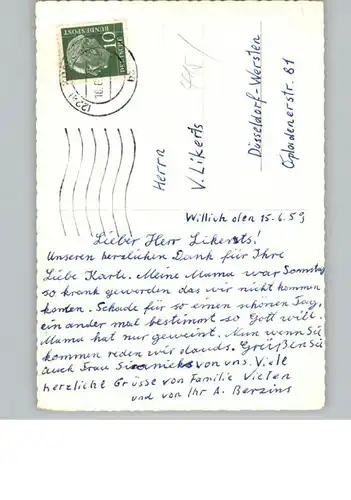 10
DEUTSCHE
BUNDESPOST
Herrn
V. Likerts
Düsseldorf-Wersten
Opladenerstr. 61
Willich den 15.6.59
Lieber Herr Likerts!
Unseren herzlichen Dank für Ihre
Liebe Karte. Meine Mama war Sonnstag
so krank geworden das wir nicht kommen
konten. Schade für so einen schönen Tag,
ein ander mal bestimmt so Gott will.
Mama hat nur geweint. Nun wenn Sie
kommen reden wir. Grüßen Sie
auch Frau von uns. Viele
herzliche Grüsse von Familie Vieten
und von Ihr A. Berzins